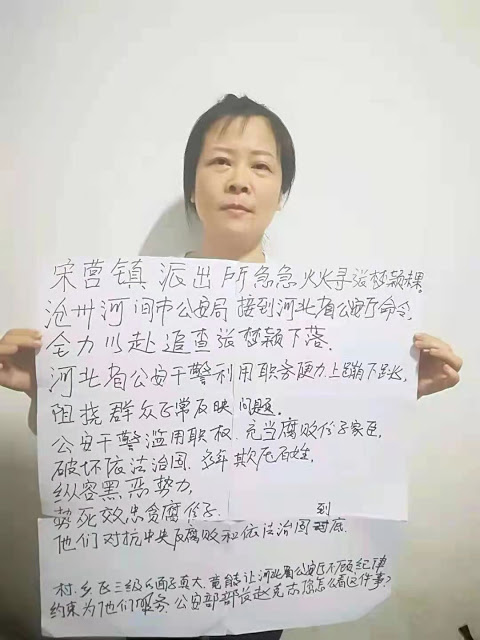 宋营镇派出所急急火火寻张梦颖
沧州河间市公安局接到河北省公安厅命令.
全力以赴追查张梦颖下落.
河北省公安干警利用职务便力上蹦下跳,
阻挠群众正常反映问题.
公安干警滥用职权.充当腐败份子家臣,
破坏依法治国.多年欺压百姓,
纵容黑恶势力,
势死效忠贪腐份子.
他们对抗中央反腐败和依法治国到底.
村.乡.区三级的面子真大.竟能让河北省公安厅不顾纪律
约束为他们服务.公安部部长赵克志你怎么看这件事?